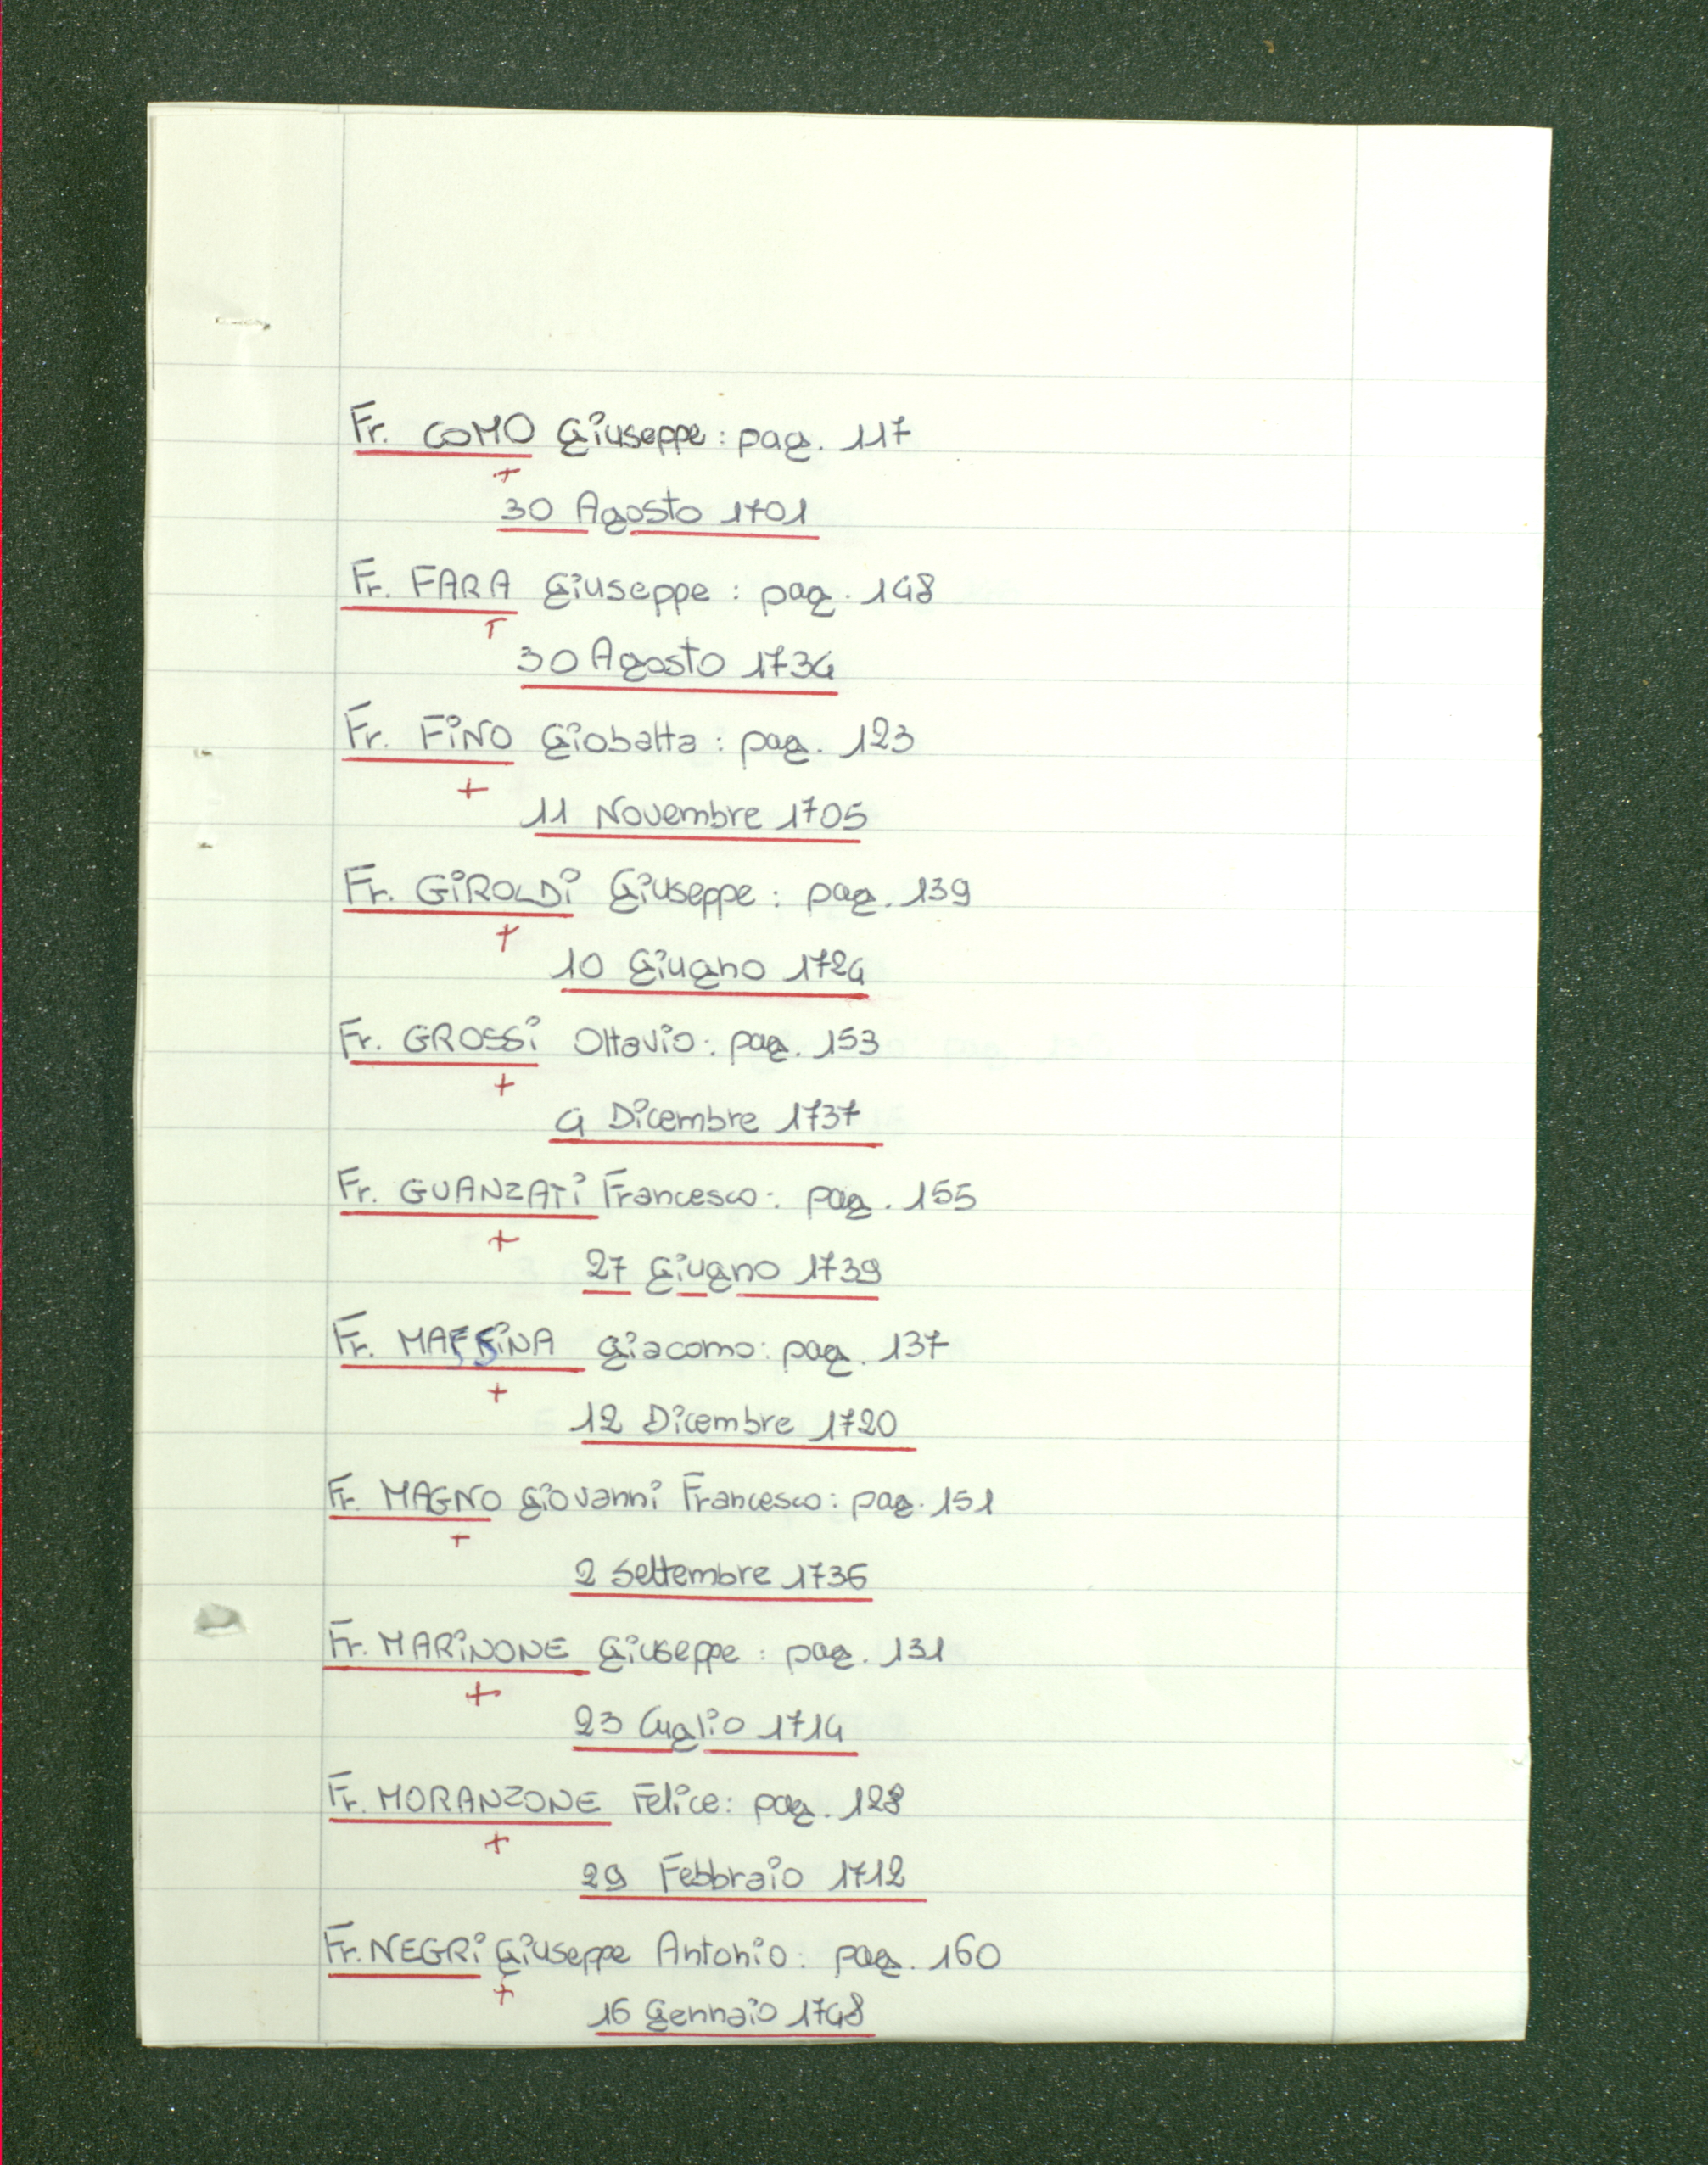 Fr. COMO Giuseppe: pag. 117
+
30 Agosto 1701
Fr. FARA Giuseppe: pag. 148
+
30 Agosto 1734
Fr. FINO Giobatta: pag. 123
+
11 Novembre 1705
Fr. GIROLDI Giuseppe: pag. 139
+
10 Giugno 1724
Fr. GROSSI Ottavio: pag. 153
+
4 Dicembre 1737
Fr. GUANZATI Francesco: pag. 155
+
27 Giugno 1739
Fr. MASSINA Giacomo: pag. 137
+
12 Dicembre 1720
Fr. MAGNO Giovanni Francesco: pag. 151
+
2 Settembre 1736
Fr. MARINONE Giuseppe: pag. 131
+
23 Luglio 1714
Fr. MORANZONE Felice: pag. 128
+
29 Febbraio 1712
Fr. NEGRI Giuseppe Antonio: pag. 160
+
16 Gennaio 1748